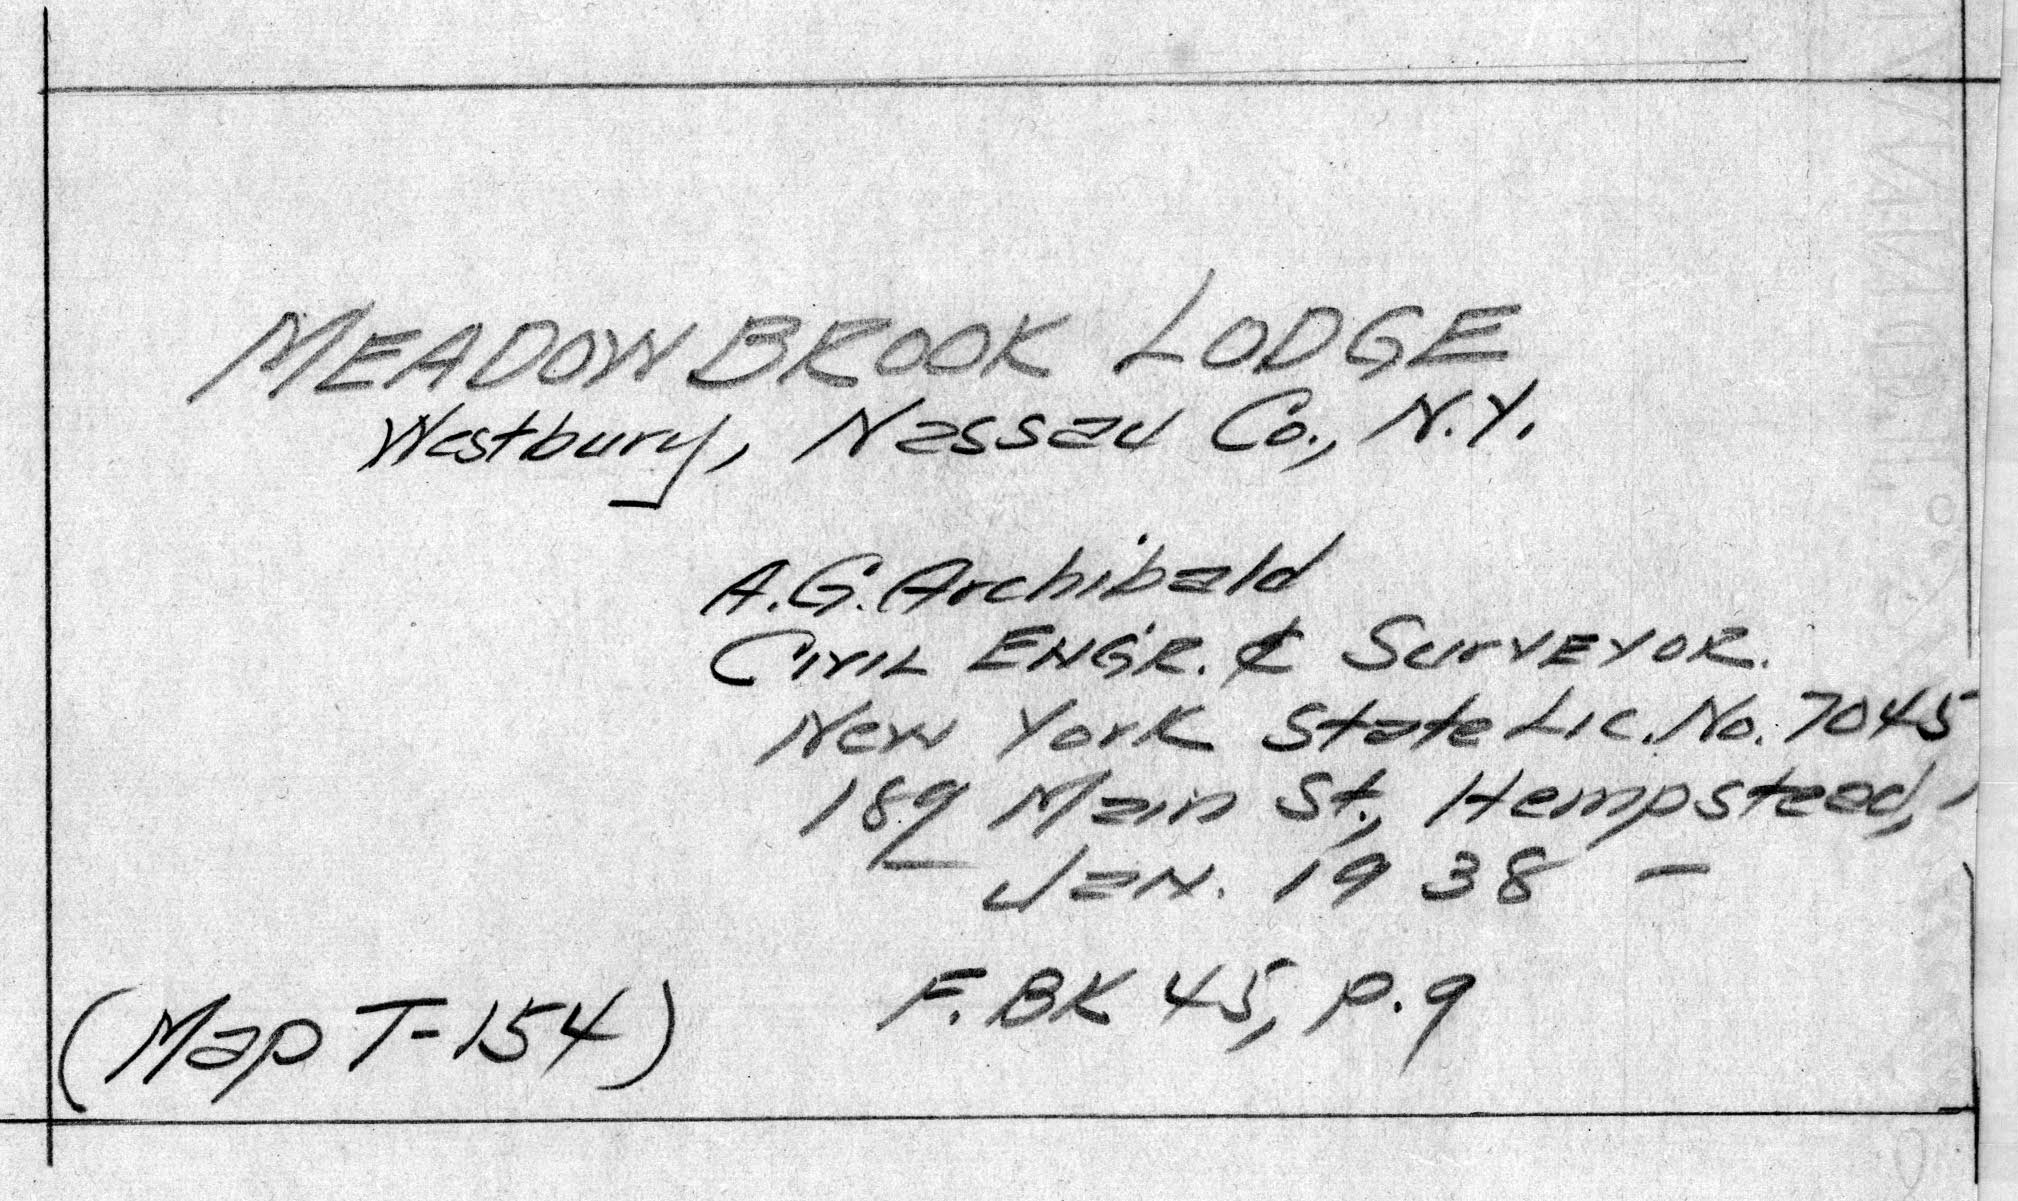 MEADOW BROOK LODGE
Westbury, Nassau Co., N.Y.
A.G. Archibald
CIVIL ENG'R. & SURVEYOR.
New York State Lic. No. 7045
189 Main St., Hempstead,
— Jan. 1938 —
F. BK 45, p. 9
(Map T-154)